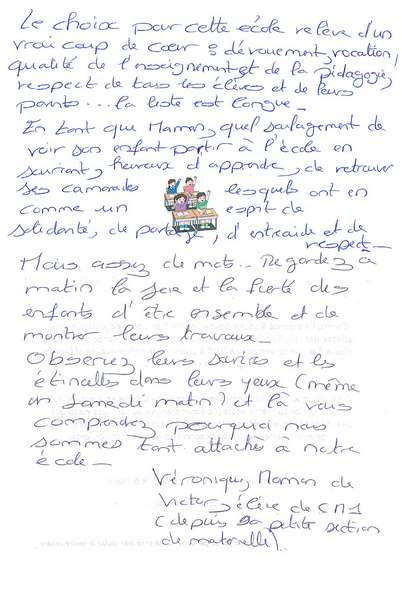 Le choix pour cette école relève d'un
vrai coup de cœur : dévouement, vocation,
qualité de l'enseignement et de la pédagogie,
respect de tous les élèves et de leurs
parents... la liste est longue -
En tant que Maman, quel soulagement de
voir son enfant partir à l'école en
souriant, heureux d'apprendre, de retrouver
ses camarades lesquels ont en
comme un esprit de
solidarité, de partage, d'entraide et de
respect -
Mais assez de mots... Regardez ce
matin la joie et la fierté des
enfants d'être ensemble et de
montrer leurs travaux -
Observez leurs sourires et les
étincelles dans leurs yeux (même
un Samedi matin) et là vous
comprendrez pourquoi nous
sommes tant attachés à notre
école -
Véronique, Maman de
Victor, élève de CM1
(depuis sa petite section
de maternelle).